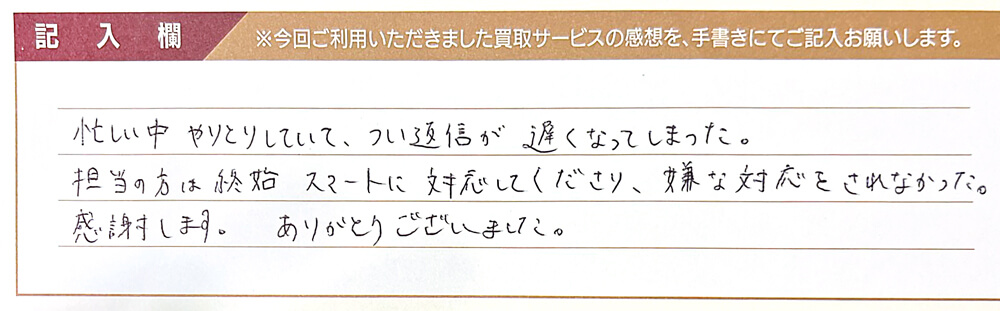 記入欄
※今回ご利用いただきました買取サービスの感想を、手書きにてご記入お願いします。
忙しい中 やりとりしていて、つい返信が 遅くなってしまった。
担当の方は終始 スマートに 対応してくださり、嫌な対応をされなかった。
感謝します。 ありがとうございました。